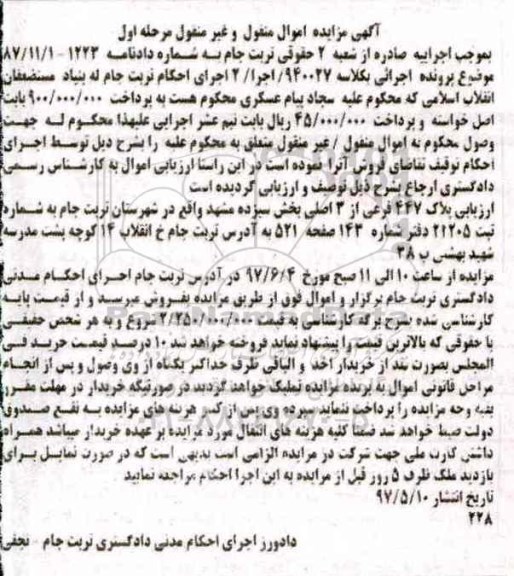 آگهی مزایده اموال منقول و غیر منقول مرحله اول
بموجب اجراییه صادره از شعبه 2 حقوقی تربت جام به شماره دادنامه 1223 - 87/11/1
موضوع پرونده اجرائی بکلاسه 940027/ اجرا/ 2 اجرای احکام تربت جام له بنیاد مستضعفان
انقلاب اسلامی که محکوم علیه سجاد پیام عسکری محکوم هست به پرداخت 900/000/000 بابت
اصل خواسته و پرداخت 45/000/000 ریال بابت نیم عشر اجرایی علیهذا محکوم له جهت
وصول محکوم به اموال منقول / غیر منقول متعلق به محکوم علیه را بشرح ذیل توسط اجرای
احکام توقیف تقاضای فروش آنرا نموده است در این راستا ارزیابی اموال به کارشناس رسمی
دادگستری ارجاع بشرح ذیل توصیف و ارزیابی گردیده است
ارزیابی پلاک 447 فرعی از 3 اصلی بخش سیزده مشهد واقع در شهرستان تربت جام به شماره
ثبت 21205 دفتر شماره 143 صفحه 521 به آدرس تربت جام خ انقلاب 14 کوچه پشت مدرسه
شهید بهشتی پ 38
مزایده از ساعت 10 الی 11 صبح مورخ 97/6/4 در آدرس تربت جام اجرای احکام مدنی
دادگستری تربت جام برگزار و اموال فوق از طریق مزایده بفروش میرسد و از قیمت پایه
کارشناسی شده بشرح برگه کارشناسی به قیمت شروع و به هر شخص حقیقی
یا حقوقی که بالاترین قیمت را پیشنهاد نماید فروخته خواهد شد 10 درصد قیمت خرید فی
المجلس بصورت نقد از خریدار اخذ و الباقی ظرف حداکثر یکماه از وی وصول و پس از انجام
مراحل قانونی اموال به برنده مزایده تملیک خواهد گردید در صورتیکه خریدار در مهلت مقرر
بقیه وجه مزایده را پرداخت ننماید سپرده وی پس از کسر هزینه های مزایده به نفع صندوق
دولت ضبط خواهد شد ضمنا کلیه هزینه های انتقال مورد مزایده بر عهده خریدار میباشد همراه
داشتن کارت ملی جهت شرکت در مزایده الزامی است بدیهی است که در صورت تمایل برای
بازدید ملک ظرف 5 روز قبل از مزایده به این اجرا احکام مراجعه نمایید
تاریخ انتشار 97/5/10
228
دادورز اجرای احکام مدنی دادگستری تربت جام - نجفی